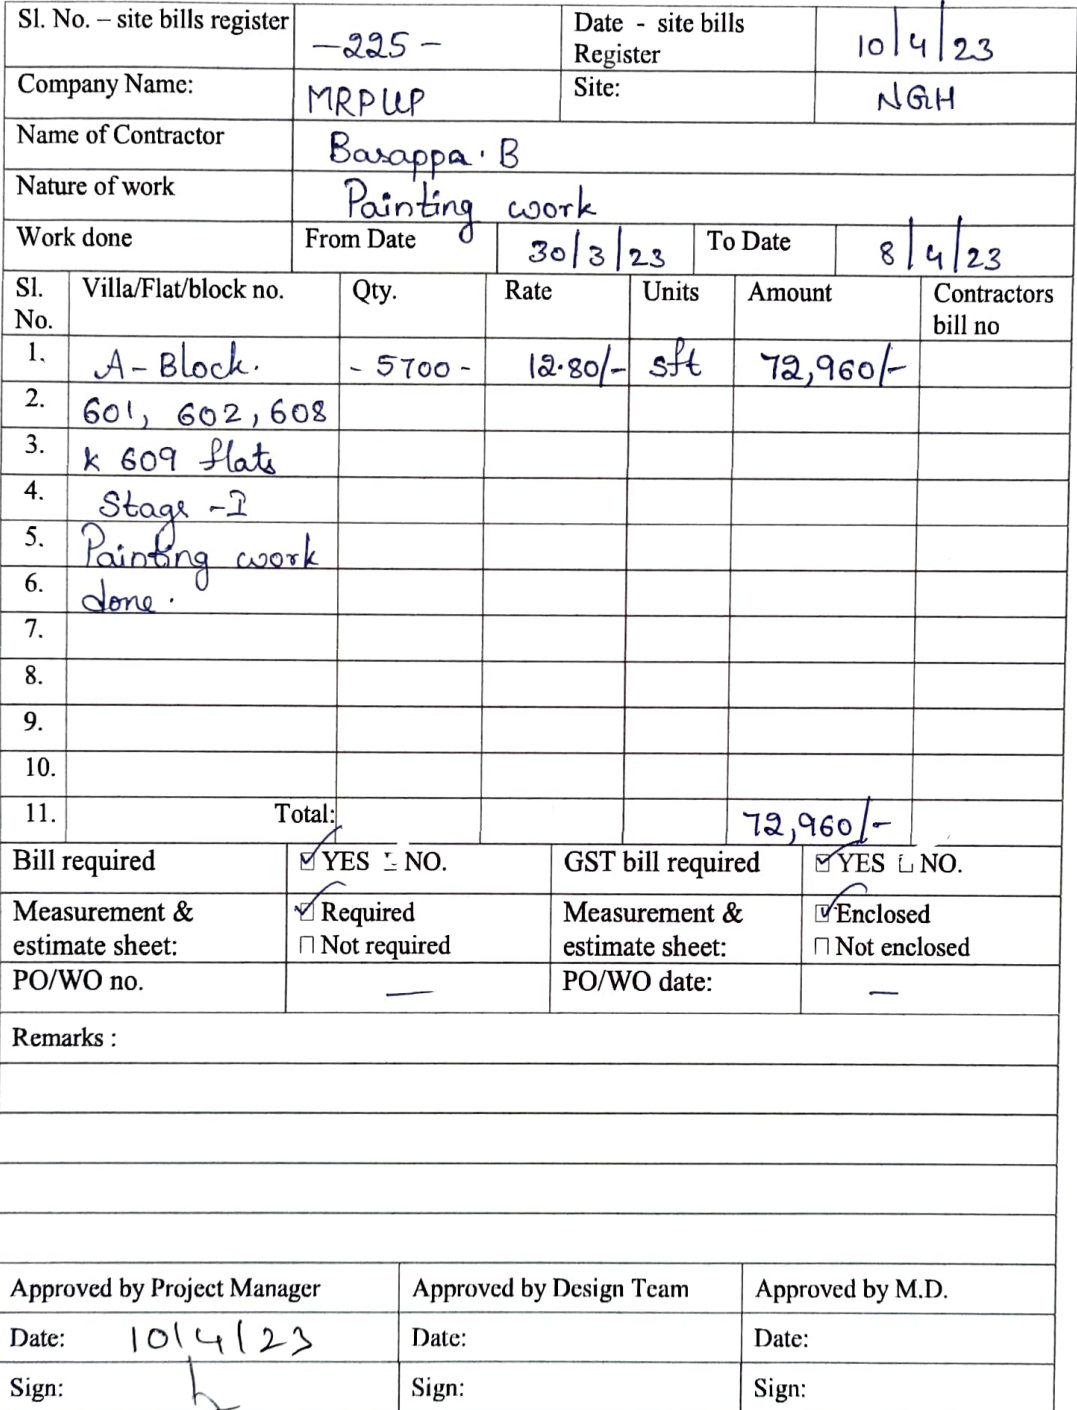 Sl. No. – site bills register -225- Date - site bills Register 10/4/23
Company Name: MRPLLP Site: NGH
Name of Contractor Basappa. B
Nature of work Painting work
Work done From Date 30/3/23 To Date 8/4/23
Sl. No. Villa/Flat/block no. Qty. Rate Units Amount Contractors bill no
1. A-Block. -5700- 12.80/- sft 72,960/-
2. 601, 602, 608
3. & 609 flats
4. Stage -I
5. Painting work
6. done.
7.
8.
9.
10.
11. Total: 72,960/-
Bill required ☑ YES ☐ NO. GST bill required ☑ YES ☐ NO.
Measurement & estimate sheet: ☑ Required Measurement & estimate sheet: ☑ Enclosed
☐ Not required ☐ Not enclosed
PO/WO no. — PO/WO date: —
Remarks :
Approved by Project Manager Approved by Design Team Approved by M.D.
Date: 10/4/23 Date: Date:
Sign: Sign: Sign: